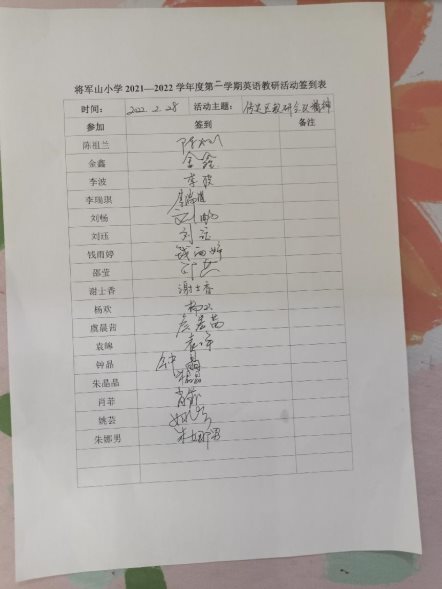 将军山小学2021—2022学年度第二学期英语教研活动签到表
时间： 2022.2.28 活动主题： 传达区教研会议精神
参加 签到 备注
陈祖兰
金鑫 金鑫
李波 李波
李瑞琪 李瑞琪
刘畅 刘畅
刘珏 刘珏
钱雨婷 钱雨婷
邵莹 邵莹
谢士香 谢士香
杨欢 杨欢
虞晨茜
袁峥
钟晶 钟晶
朱晶晶 朱晶晶
肖菲 肖菲
姚芸 姚芸
朱娜男 朱娜男